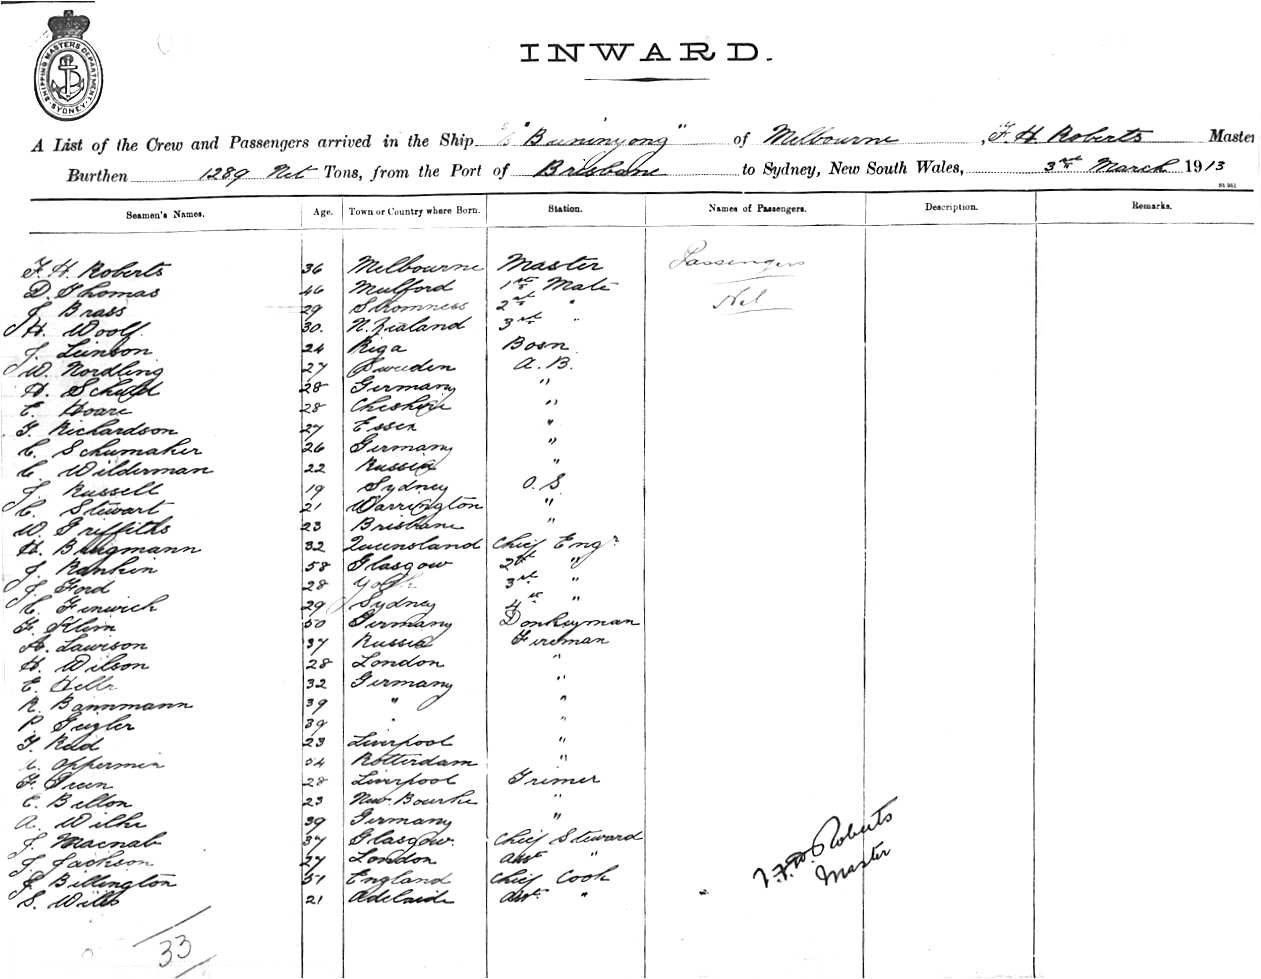 SHIPPING MASTERS DEPARTMENT. SYDNEY
INWARD.
A List of the Crew and Passengers arrived in the Ship "Buninyong" of Melbourne, F. H. Roberts Master
Burthen 1289 Net Tons, from the Port of Brisbane to Sydney, New South Wales, 3rd March 1913
Seamen's Names. Age. Town or Country where Born. Station. Names of Passengers. Description. Remarks.
F. H. Roberts 36 Melbourne Master Passengers
D. Thomas 46 Mulford 1st Mate Nil
J. Brass 29 Stromness 2nd "
H. Woolf 30. N. Zealand 3rd "
J. Lunson 24 Riga Bosn
W. Nordling 27 Sweden A. B.
H. Schuld 28 Germany "
E. Hoare 28 Cheshire "
T. Richardson 27 Essex "
C. Schumaker 26 Germany "
C. Wilderman 22 Russia "
J. Russell 19 Sydney O. S
C. Stewart 21 Warrington "
W. Griffiths 23 Brisbane "
H. Brugmann 32 Queensland Chief Engr
J. Rankin 58 Glasgow 2nd "
J. Ford 28 York 3rd "
C. Fenwick 29 Sydney 4th "
F. Klein 50 Germany Donkeyman
A. Lawson 37 Russia Fireman
H. Wilson 28 London "
E. 32 Germany "
R. Bannmann 39 " "
P. Geizler 39 " "
T. Reid 23 Liverpool "
Opperman 54 Rotterdam "
F. Green 28 Liverpool Trimer
E. Billon 23 New Bourke "
A. Wilke 39 Germany "
J. Macnab 37 Glasgow. Chief Steward
J. Jackson 27 London Asst "
J. Billington 51 England Chief Cook
S. Wills 21 Adelaide Asst "
F. H. Roberts
Master
33